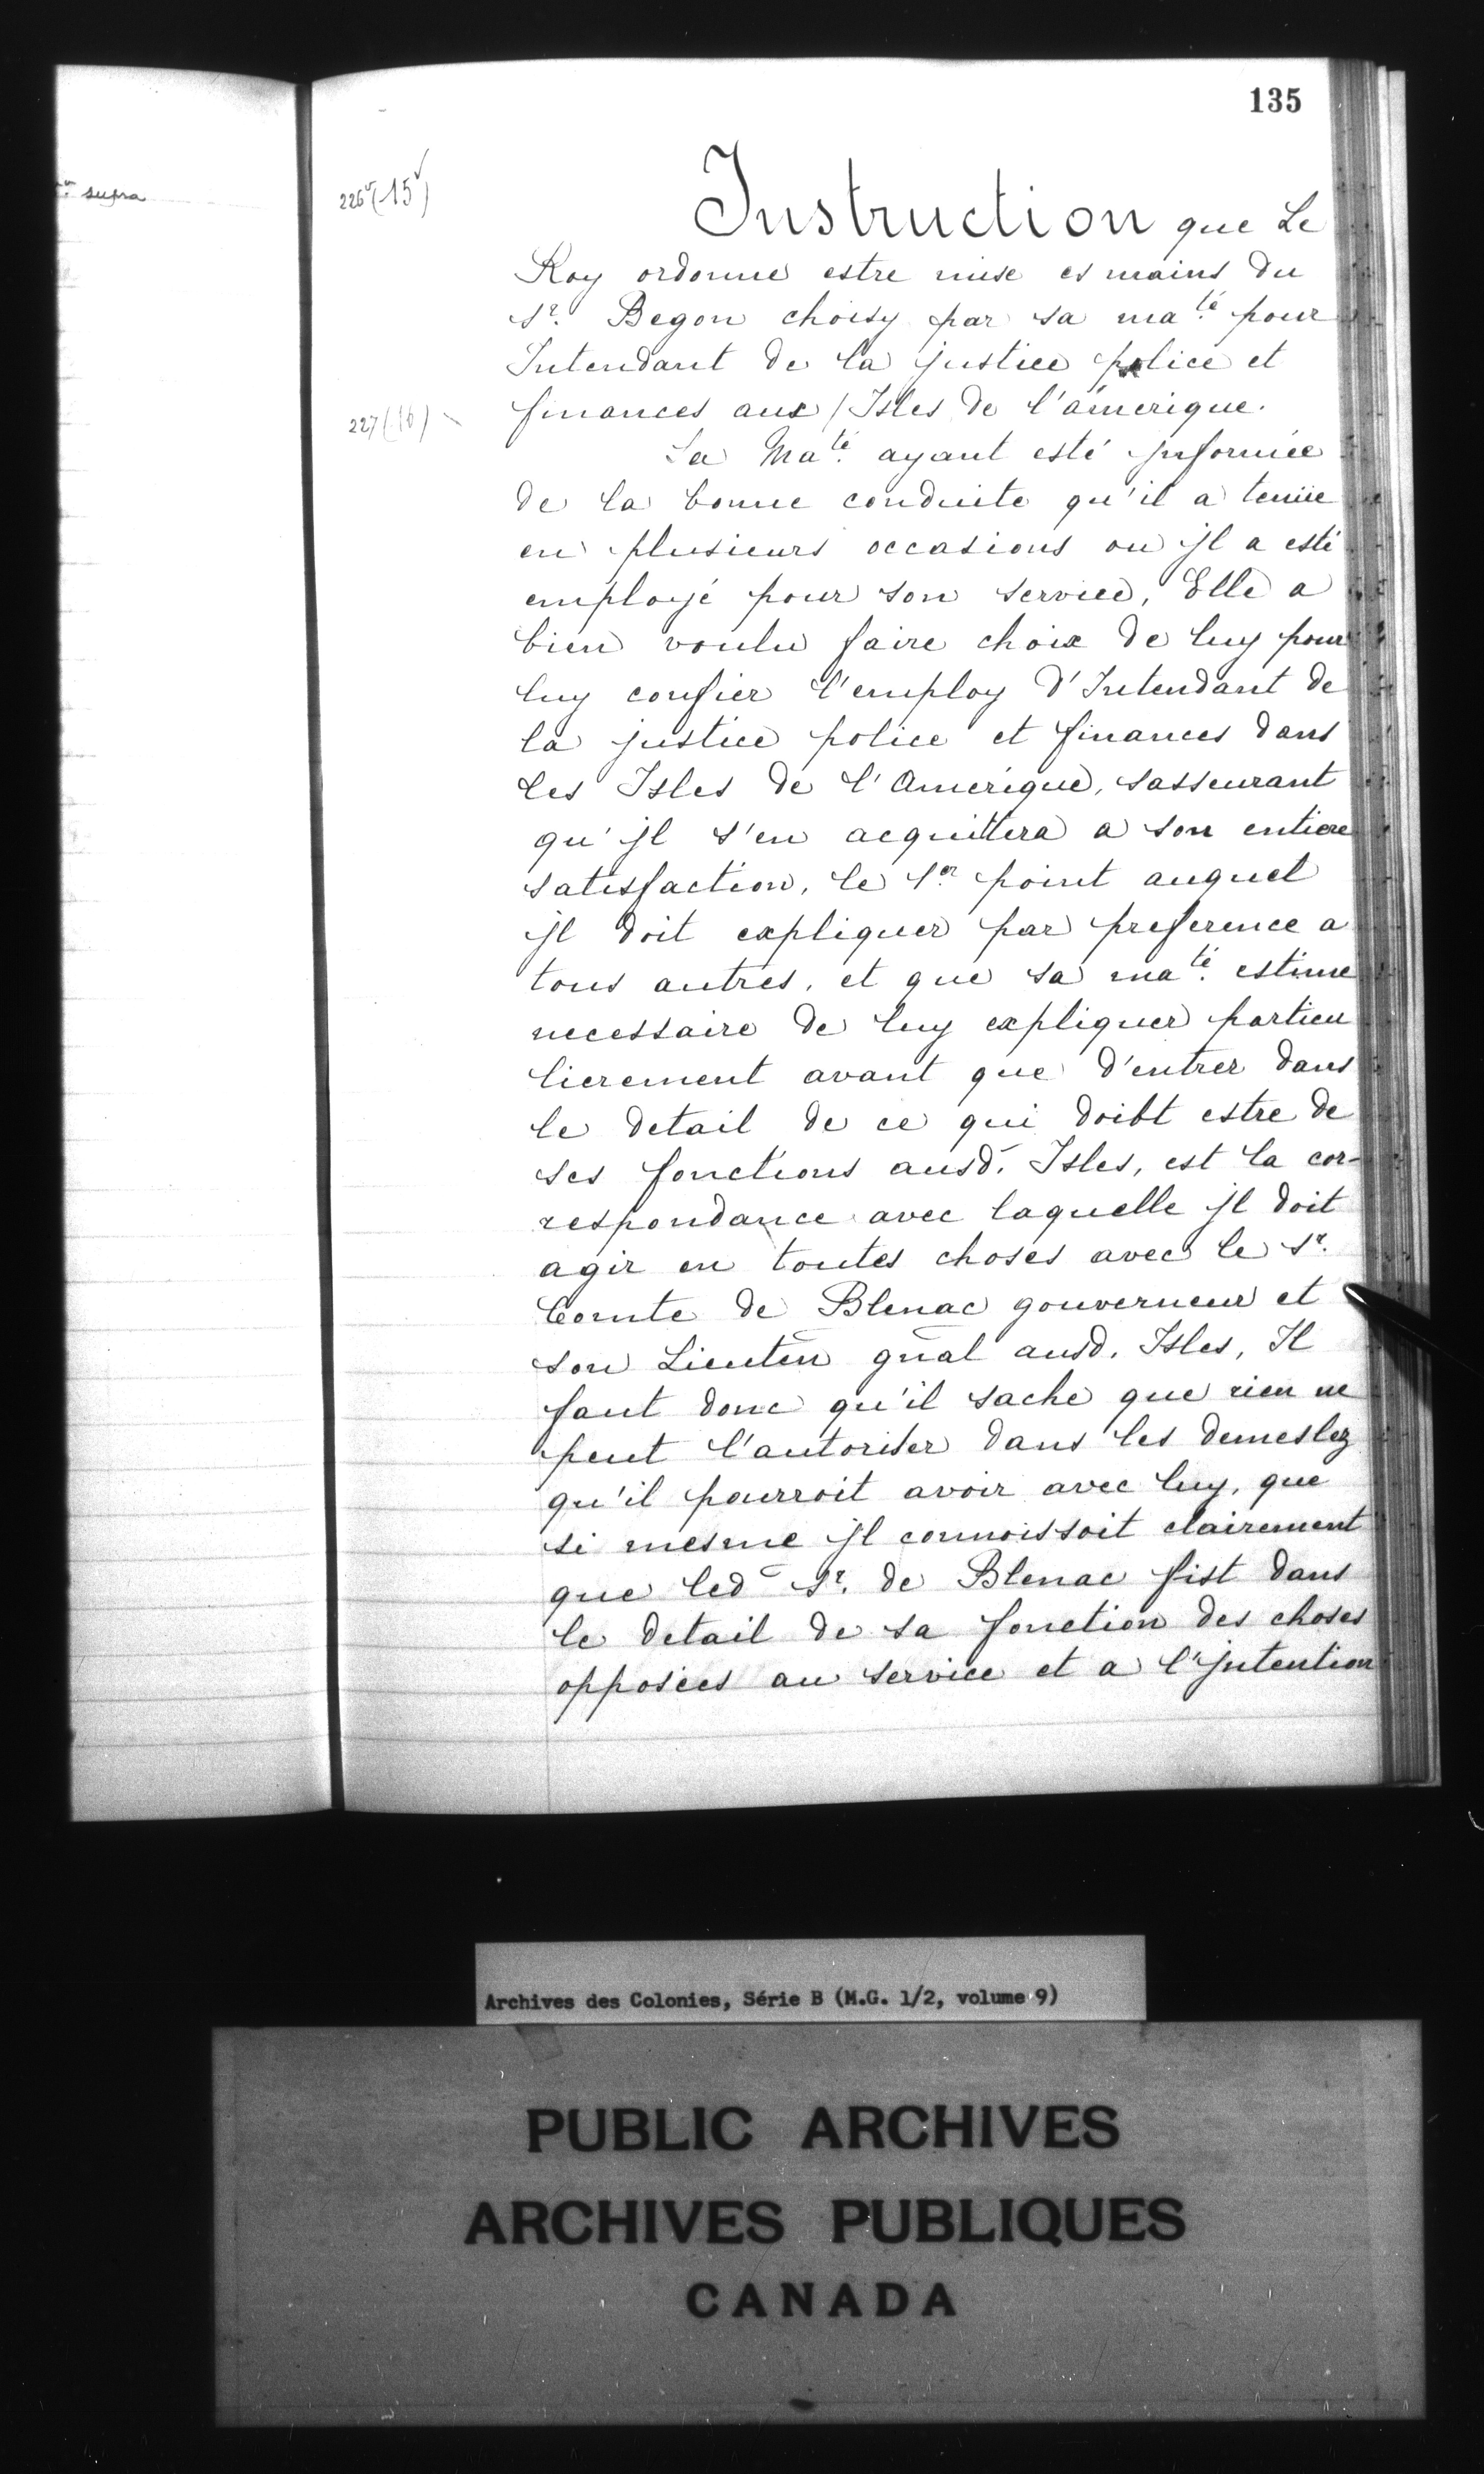 135
supra
226v (15v)
Instruction que Le
Roy ordonne estre mise es mains du
Sr. Begon choisy par sa ma.té pour
Intendant de la justice police et
227 (16)
finances aux / Isles de l'amerique.
Sa Ma.té ayant esté jnformée
de la bonne conduite qu'il a tenüe
en plusieurs occasions ou jl a esté
employé pour son service, Elle a
bien voulu faire choix de luy pour
luy confier l'employ d'Intendant de
la justice police et finances dans
les Isles de l'Amerique, sasseurant
qu'jl s'en acquittera a son entiere
satisfaction, le 1er. point auquel
jl doit expliquer par preference a
tous autres, et que sa ma.té estime
necessaire de luy expliquer particu
lierement avant que d'entrer dans
le detail de ce qui doibt estre de
ses fonctions ausd. Isles, est la cor-
respondance avec laquelle jl doit
agir en toutes choses avec le Sr.
Comte de Blenac gouverneur et
son Lieuten̄ gn̄al ausd. Isles, Il
faut donc qu'il sache que rien ne
peut l'autoriser dans les demeslez
qu'il pourroit avoir avec luy, que
si mesme jl connoissoit clairement
que led Sr. de Blenac fist dans
le detail de sa fonction des choses
opposées au service et a l'jntention
Archives des Colonies, Série B (M.G. 1/2, volume 9)
PUBLIC ARCHIVES
ARCHIVES PUBLIQUES
CANADA